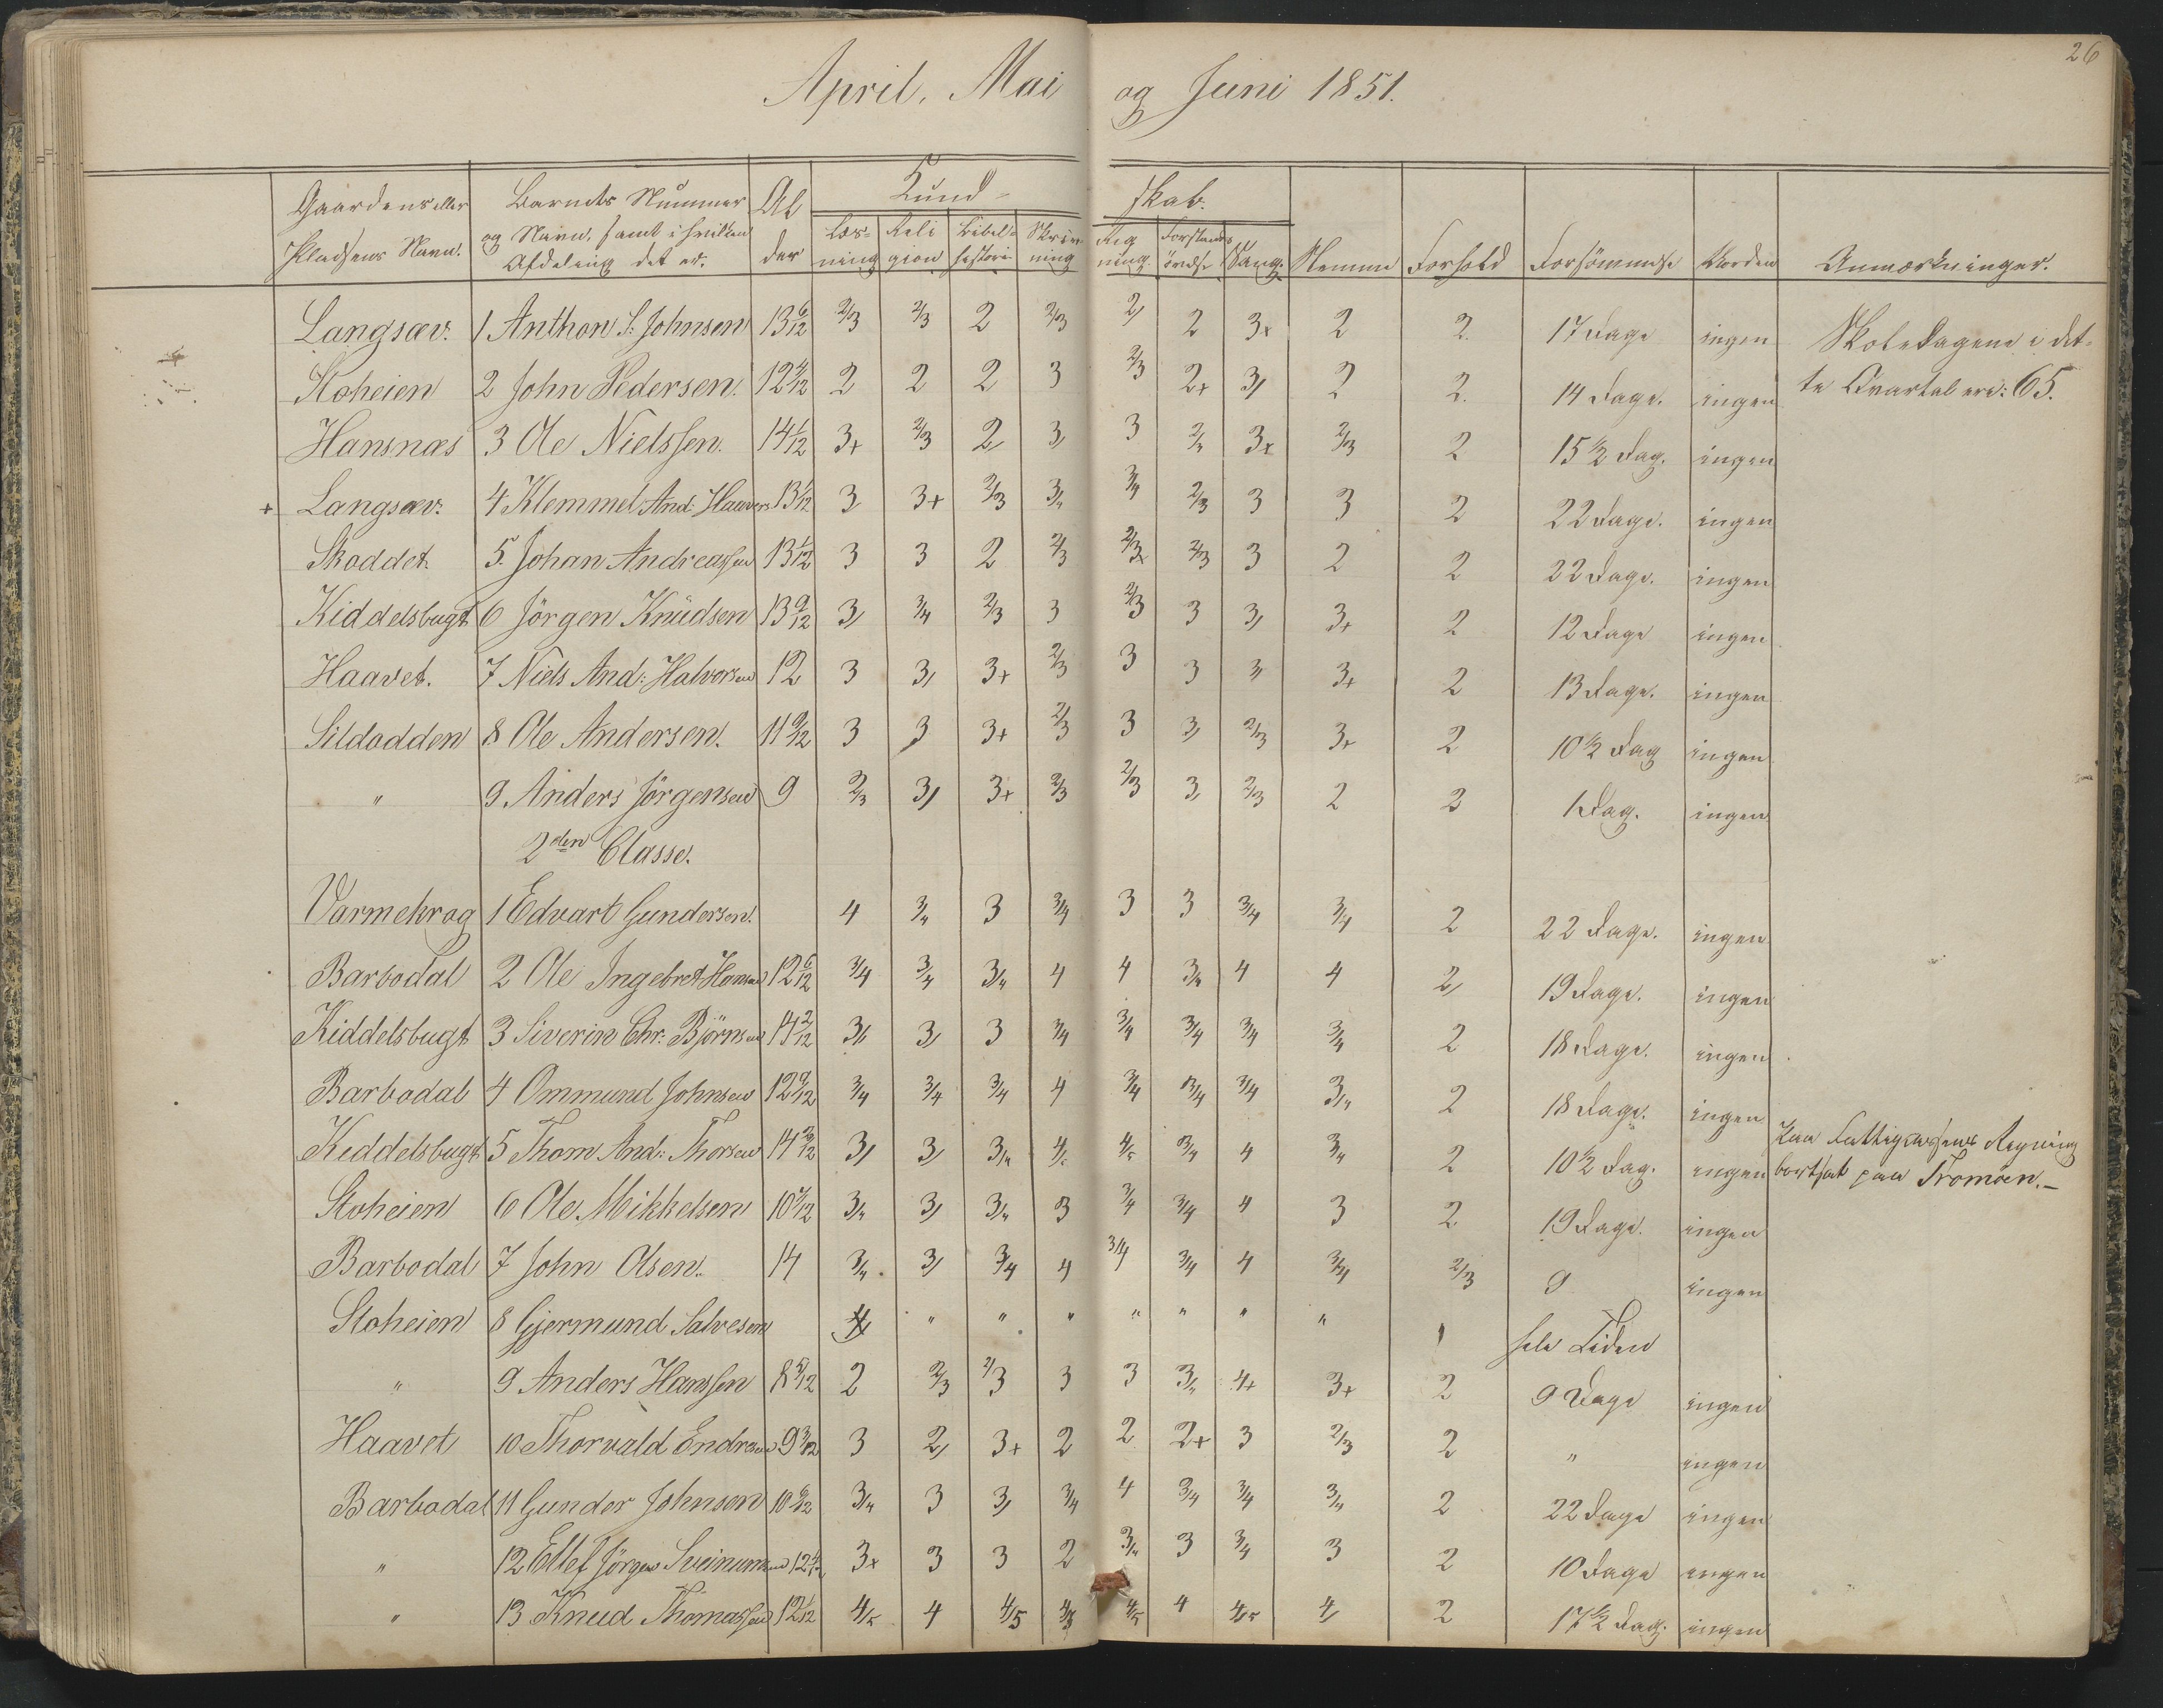 26
April, Mai og Juni 1851.
Gaardens eller Pladsens Navn. Barnets Nummer og Navn, samt i hvilken Afdeling det er. Alder Kundskab: Læsning Religion Bibelhistorie Skrivning Regning. Forstandsövelse Sang. Nemme Forhold Forsömmelse Anmærkninger.
Langsæv. 1 Anthon S. Johnsen 13 6/12 2/3 2/3 2 2/3 2/ 2 3+ 2 2. 17 Dage ingen Skoledagene i det-
Stoheien 2 John Pedersen. 12 4/12 2 2 2 3 2/3 2+ 3/ 2 2. 14 Dage. ingen te Qvartal ere: 65.
Hansnæs 3 Ole Nielssen. 14 1/12 3+ 2/3 2/ 3/ 3 2/3 3+ 2/3 2 15 1/2 Dag. ingen
+ Langsæv. 4. Klemmet And: Haavors 13 1/12 3 3+ 2/3 3/4 3/4 2/3 3 3 2 22 Dage. ingen
Skoddet. 5. Johan Andreassen 13 1/12 3 3 2 2/3 2/3+ 2/3 3 2 2 22 Dage. ingen
Kiddelsbugt 6 Jörgen Knudsen 13 9/12 3/ 3/4 2/3 3 2/3 3 3/ 3+ 2 12 Dage ingen
Haavet. 7 Niels And: Halvorsen 12 3 3/ 3+ 2/3 3 3 3/ 3+ 2 13 Dage. ingen
Sildodden 8 Ole Andersen. 11 9/12 3 3 3+ 2/3 3 3/ 2/3 3+ 2 10 1/2 Dag ingen
" 9 Anders Jörgensen 9 2/3 3/ 3+ 2/3 2/3 3/ 2/3 2 2 1 Dag. ingen
2den Classe.
Varmekrog 1 Edvart Gundersen. 4 3/4 3 3/4 3 3 3/4 3/4 2 22 Dage. ingen
Barbodal 2 Ole Ingebret Hansen 12 6/12 3/4 3/4 3/4 4 4 3/4 4 4 2/ 19 Dage. ingen
Kiddelsbugt 3 Siverin Chr: Björnsen 14 2/12 3/ 3/ 3 3/4 3/4 3/4 3/4 3/4 2 18 Dage. ingen
Barbodal 4 Ommund Johnsen 12 9/12 3/4 3/4 3/4 4 3/4 3/4 3/4 3/4 2 18 Dage. ingen
Kiddelsbugt 5 Thom And: Thorsen 14 3/ 3/ 3/4 4/5 4/5 3/4 4 3/4 2 10 1/2 Dag. ingen paa Fattigcassens Regning
bortsat paa Tromöen. -
Stoheien 6 Ole Mikkelsen 10 7/12 3/4 3/ 3/4 3 3/4 3/4 4 3 2 19 Dage. ingen
Barbodal 7 John Olsen. 14 3/4 3/ 3/4 4 3/4 3/4 4 3/4 2/3 9 ingen
Stoheien 8 Gjermund Salvesen " " " " " " " hele Tiden
" 9 Anders Hanssen 8 5/12 2 2/3 2/3 3 3 3/4 4+ 3+ 2 9 Dage ingen
Haavet 10 Thorvald Endresen 9 3/12 3 2/ 3+ 2 2 2+ 3 2/3 2 " ingen
Barbodal 11 Gunder Johnsen 10 9/12 3/4 3 3/ 3/4 4 3/4 3/4 3/4 2 22 Dage ingen
" 12 Ellef Jörgen 12 3+ 3 3 2 3/4 3 3/4 3 2 10 Dage ingen
" 13 Knud Thomassen 12 1/12 4/5 4 4/5 4/5 4 4/5 4/ 2 17 1/2 Dag. ingen